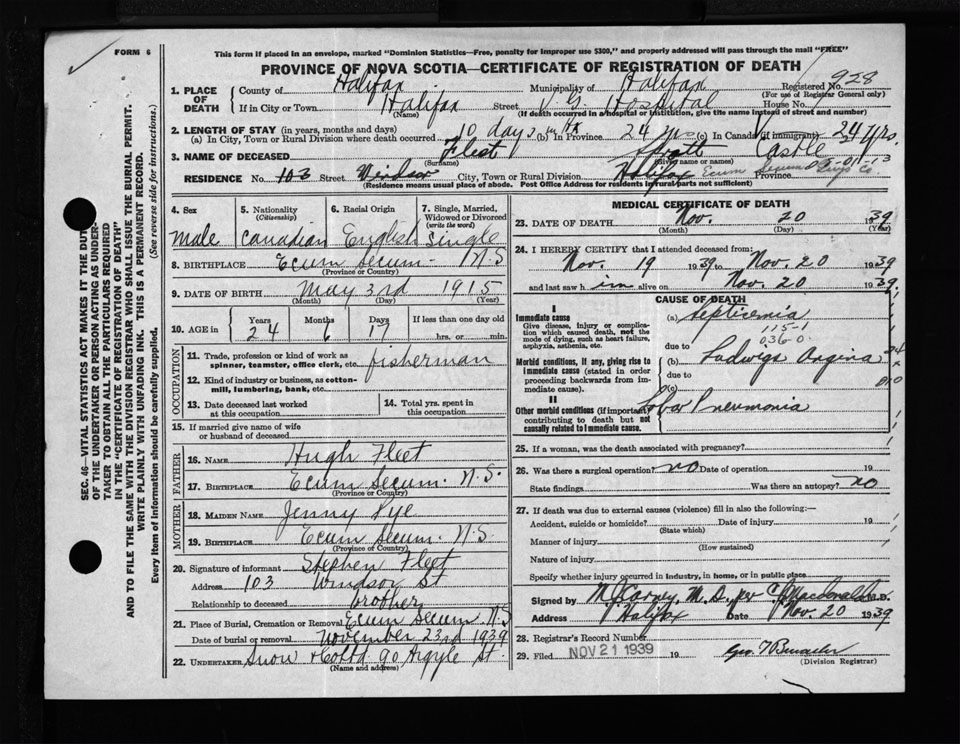 FORM 6
This form if placed in an envelope, marked "Dominion Statistics—Free, penalty for improper use $300," and properly addressed will pass through the mail "FREE"
PROVINCE OF NOVA SCOTIA—CERTIFICATE OF REGISTRATION OF DEATH
1. PLACE OF DEATH
County of Halifax Municipality of Halifax Registered No. 928
(For use of Registrar General only)
If in City or Town Halifax Street V. G. Hospital House No.
(Name) (If death occurred in a hospital or institution, give the name instead of street and number)
2. LENGTH OF STAY (in years, months and days)
(a) In City, Town or Rural Division where death occurred 10 days (b) In Province 24 yrs (c) In Canada (if immigrant) 24 yrs.
3. NAME OF DECEASED Fleet Castle
(Surname) (Given name or names)
RESIDENCE No. 103 Street Windsor City, Town or Rural Division Halifax Ecum Secum Province
(Residence means usual place of abode. Post Office Address for residents in rural parts not sufficient)
4. Sex
male
5. Nationality
(Citizenship)
Canadian
6. Racial Origin
English
7. Single, Married, Widowed or Divorced
(write the word)
Single
8. BIRTHPLACE Ecum Secum - N S
(Province or Country)
9. DATE OF BIRTH May 3rd 1915
(Month) (Day) (Year)
10. AGE in
Years Months Days If less than one day old
24 6 17 hrs. or min.
OCCUPATION
11. Trade, profession or kind of work as spinner, teamster, office clerk, etc. fisherman
12. Kind of industry or business, as cotton-mill, lumbering, bank, etc.
13. Date deceased last worked at this occupation
14. Total yrs. spent in this occupation
15. If married give name of wife or husband of deceased
FATHER
16. NAME Hugh Fleet
17. BIRTHPLACE Ecum Secum. N.S.
(Province or Country)
MOTHER
18. MAIDEN NAME Jenny Pye
19. BIRTHPLACE Ecum Secum. N.S.
(Province or Country)
20. Signature of informant Stephen Fleet
Address 103 Windsor St
Relationship to deceased brother
21. Place of Burial, Cremation or Removal Ecum Secum N S
Date of burial or removal November 23rd 1939
22. UNDERTAKER Snow & Co Ltd 90 Argyle St.
(Name and address)
MEDICAL CERTIFICATE OF DEATH
23. DATE OF DEATH Nov. 20 1939
(Month) (Day) (Year)
24. I HEREBY CERTIFY that I attended deceased from:
Nov. 19 1939 to Nov. 20 1939
and last saw him alive on Nov. 20 1939
CAUSE OF DEATH
I
Immediate cause
Give disease, injury or complication which caused death, not the mode of dying, such as heart failure, asphyxia, asthenia, etc.
(a) Septicemia
115-1
036-0
due to
Morbid conditions, if any, giving rise to immediate cause (stated in order proceeding backwards from immediate cause).
(b) Ludwigs Angina
due to
(c)
II
Other morbid conditions (if important) contributing to death but not causally related to immediate cause.
Lobar Pneumonia
25. If a woman, was the death associated with pregnancy?
26. Was there a surgical operation? no Date of operation 19
State findings Was there an autopsy? no
27. If death was due to external causes (violence) fill in also the following:—
Accident, suicide or homicide? Date of injury 19
(State which)
Manner of injury
(How sustained)
Nature of injury
Specify whether injury occurred in industry, in home, or in public place
Signed by M.D. per C J Macdonald M.D.
Address Halifax Date Nov. 20 1939
28. Registrar's Record Number
29. Filed NOV 21 1939 19
(Division Registrar)
SEC. 46—VITAL STATISTICS ACT MAKES IT THE DUTY
OF THE UNDERTAKER OR PERSON ACTING AS UNDER-
TAKER TO OBTAIN ALL THE PARTICULARS REQUIRED
IN THE "CERTIFICATE OF REGISTRATION OF DEATH"
AND TO FILE THE SAME WITH THE DIVISION REGISTRAR WHO SHALL ISSUE THE BURIAL PERMIT.
WRITE PLAINLY WITH UNFADING INK. THIS IS A PERMANENT RECORD.
Every item of Information should be carefully supplied. (See reverse side for instructions.)